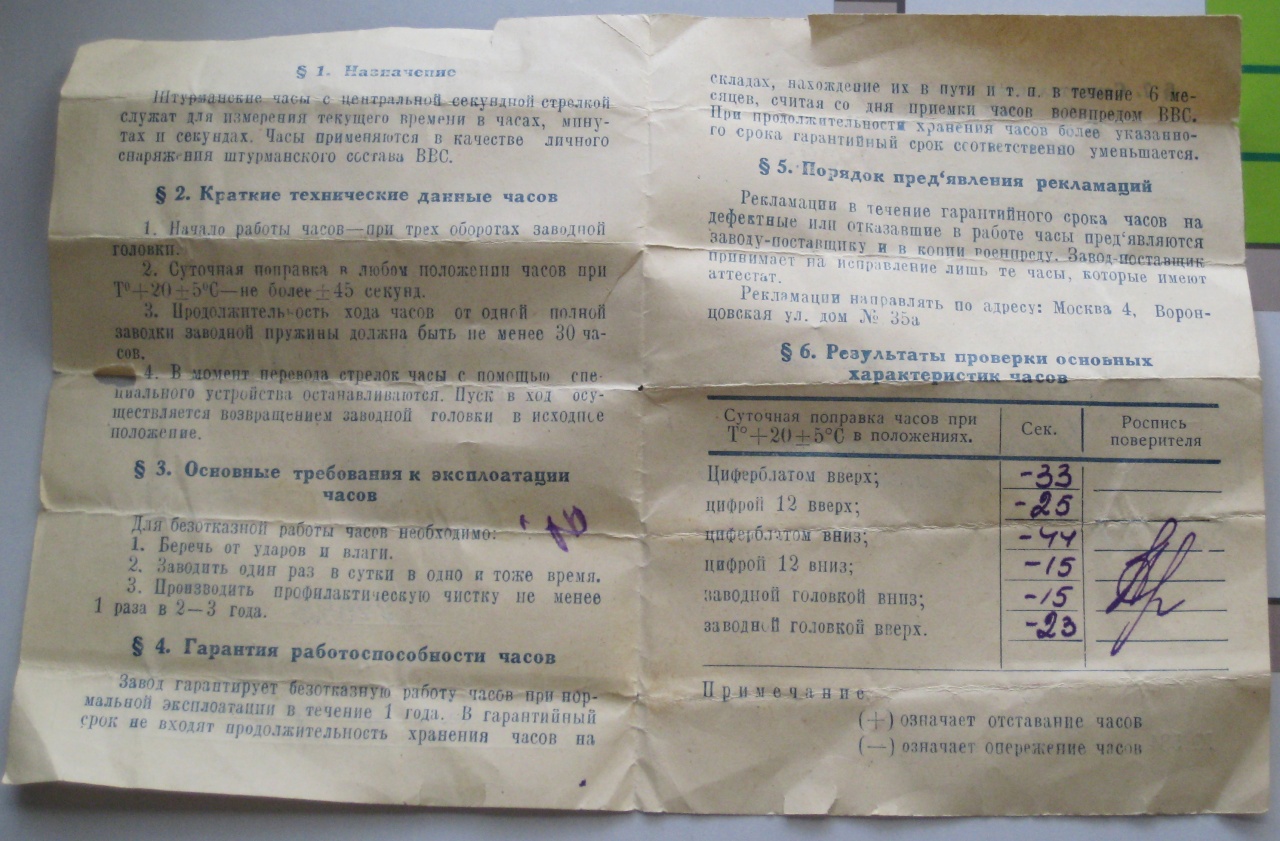 § 1. Назначение
Штурманские часы с центральной секундной стрелкой
служат для измерения текущего времени в часах, мину-
тах и секундах. Часы применяются в качестве личного
снаряжения штурманского состава ВВС.
§ 2. Краткие технические данные часов
1. Начало работы часов—при трех оборотах заводной
головки.
2. Суточная поправка в любом положении часов при
Т°+20±5°С—не более±45 секунд.
3. Продолжительность хода часов от одной полной
заводки заводной пружины должна быть не менее 30 ча-
сов.
4. В момент перевода стрелок часы с помощью спе-
циального устройства останавливаются. Пуск в ход осу-
ществляется возвращением заводной головки в исходное
положение.
§ 3. Основные требования к эксплоатации
часов
Для безотказной работы часов необходимо:
1. Беречь от ударов и влаги.
2. Заводить один раз в сутки в одно и тоже время.
3. Производить профилактическую чистку не менее
1 раза в 2—3 года.
§ 4. Гарантия работоспособности часов
Завод гарантирует безотказную работу часов при нор-
мальной эксплоатации в течение 1 года. В гарантийный
срок не входят продолжительность хранения часов на
складах, нахождение их в пути и т. п. в течение 6 ме-
сяцев, считая со дня приемки часов военпредом ВВС.
При продолжительности хранения часов более указанно-
го срока гарантийный срок соответственно уменьшается.
§ 5. Порядок пред‘явления рекламаций
Рекламации в течение гарантийного срока часов на
дефектные или отказавшие в работе часы пред‘являются
заводу-поставщику и в копии военпреду. Завод-поставщик
принимает на исправление лишь те часы, которые имеют
аттестат.
Рекламации направлять по адресу: Москва 4, Ворон-
цовская ул. дом № 35а
§ 6. Результаты проверки основных
характеристик часов
Суточная поправка часов при Т°+20±5°С в положениях. Сек. Роспись поверителя
Циферблатом вверх; -33
цифрой 12 вверх; -25
циферблатом вниз; -44
цифрой 12 вниз; -15
заводной головкой вниз; -15
заводной головкой вверх. -23
Примечание
(+) означает отставание часов
(—) означает опережение часов